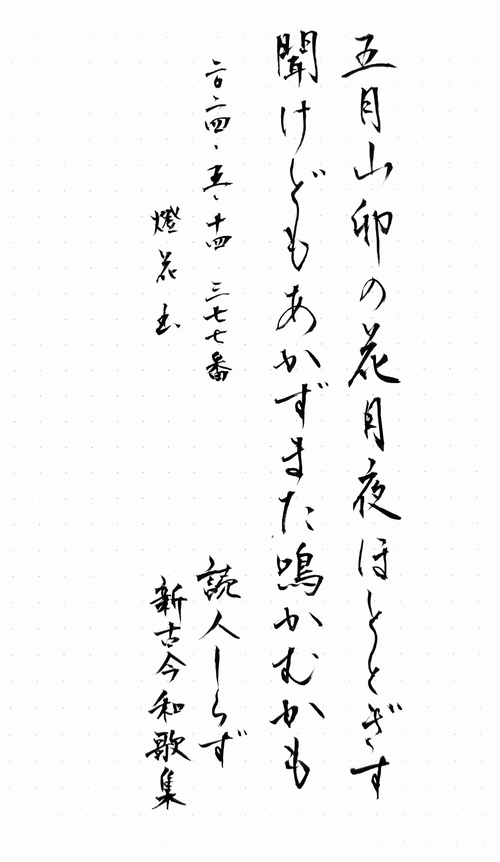 五月山卯の花月夜ほととぎす
聞けどもあかずまた鳴かむかも
読人しらず
新古今和歌集
二〇二四、五、十四 三七七番
燈花